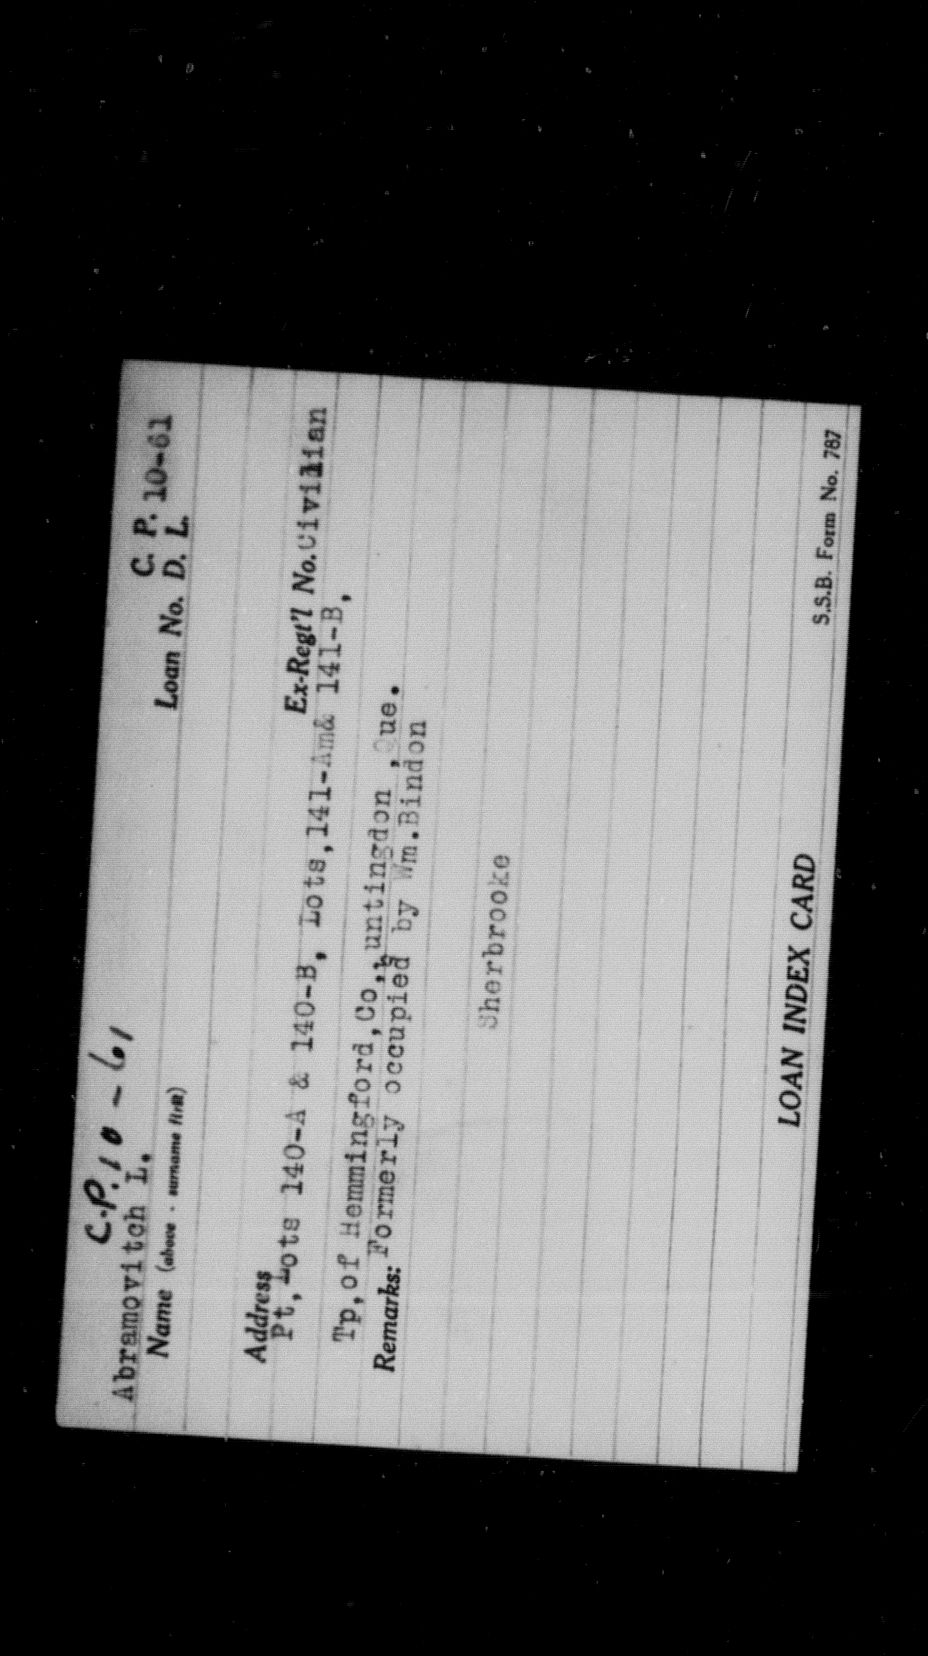 C.P. 10 - 61
Abramovitch L.
C. P. 10-61
Name (above - surname first)
Loan No. D. L.
Address
Ex-Regt'l No. Civilian
Pt, Lots 140-A & 140-B, Lots, 141-Am& 141-B,
Tp, of Hemmingford, Co, huntingdon , Que.
Remarks: Formerly occupied by Wm. Bindon
Sherbrooke
LOAN INDEX CARD
S.S.B. Form No. 787